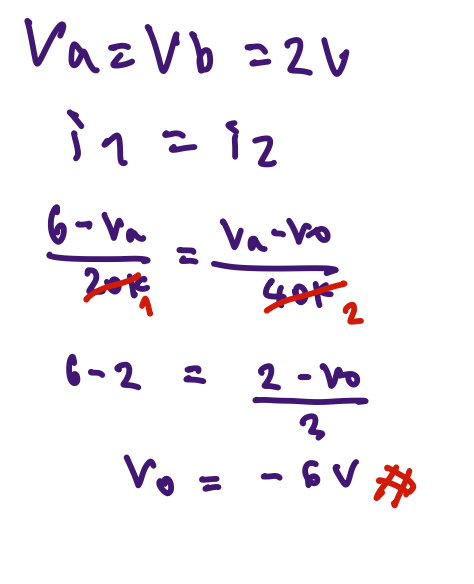 Va = Vb = 2V
i1 = i2
6 - Va / 20K 1 = Va - Vo / 40K 2
6 - 2 = 2 - Vo / 2
Vo = - 6V #